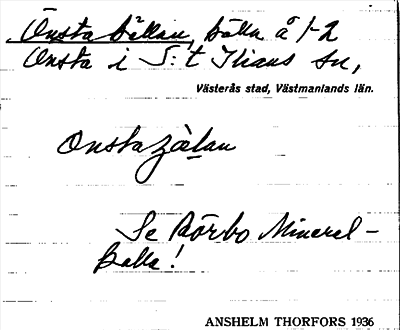 Önsta källan, källa å 1-2
Onsta i S:t Ilians sn,
Västerås stad, Västmanlands län.
Onsta
Se Rörbo Mineral-
källa!
ANSHELM THORFORS 1936